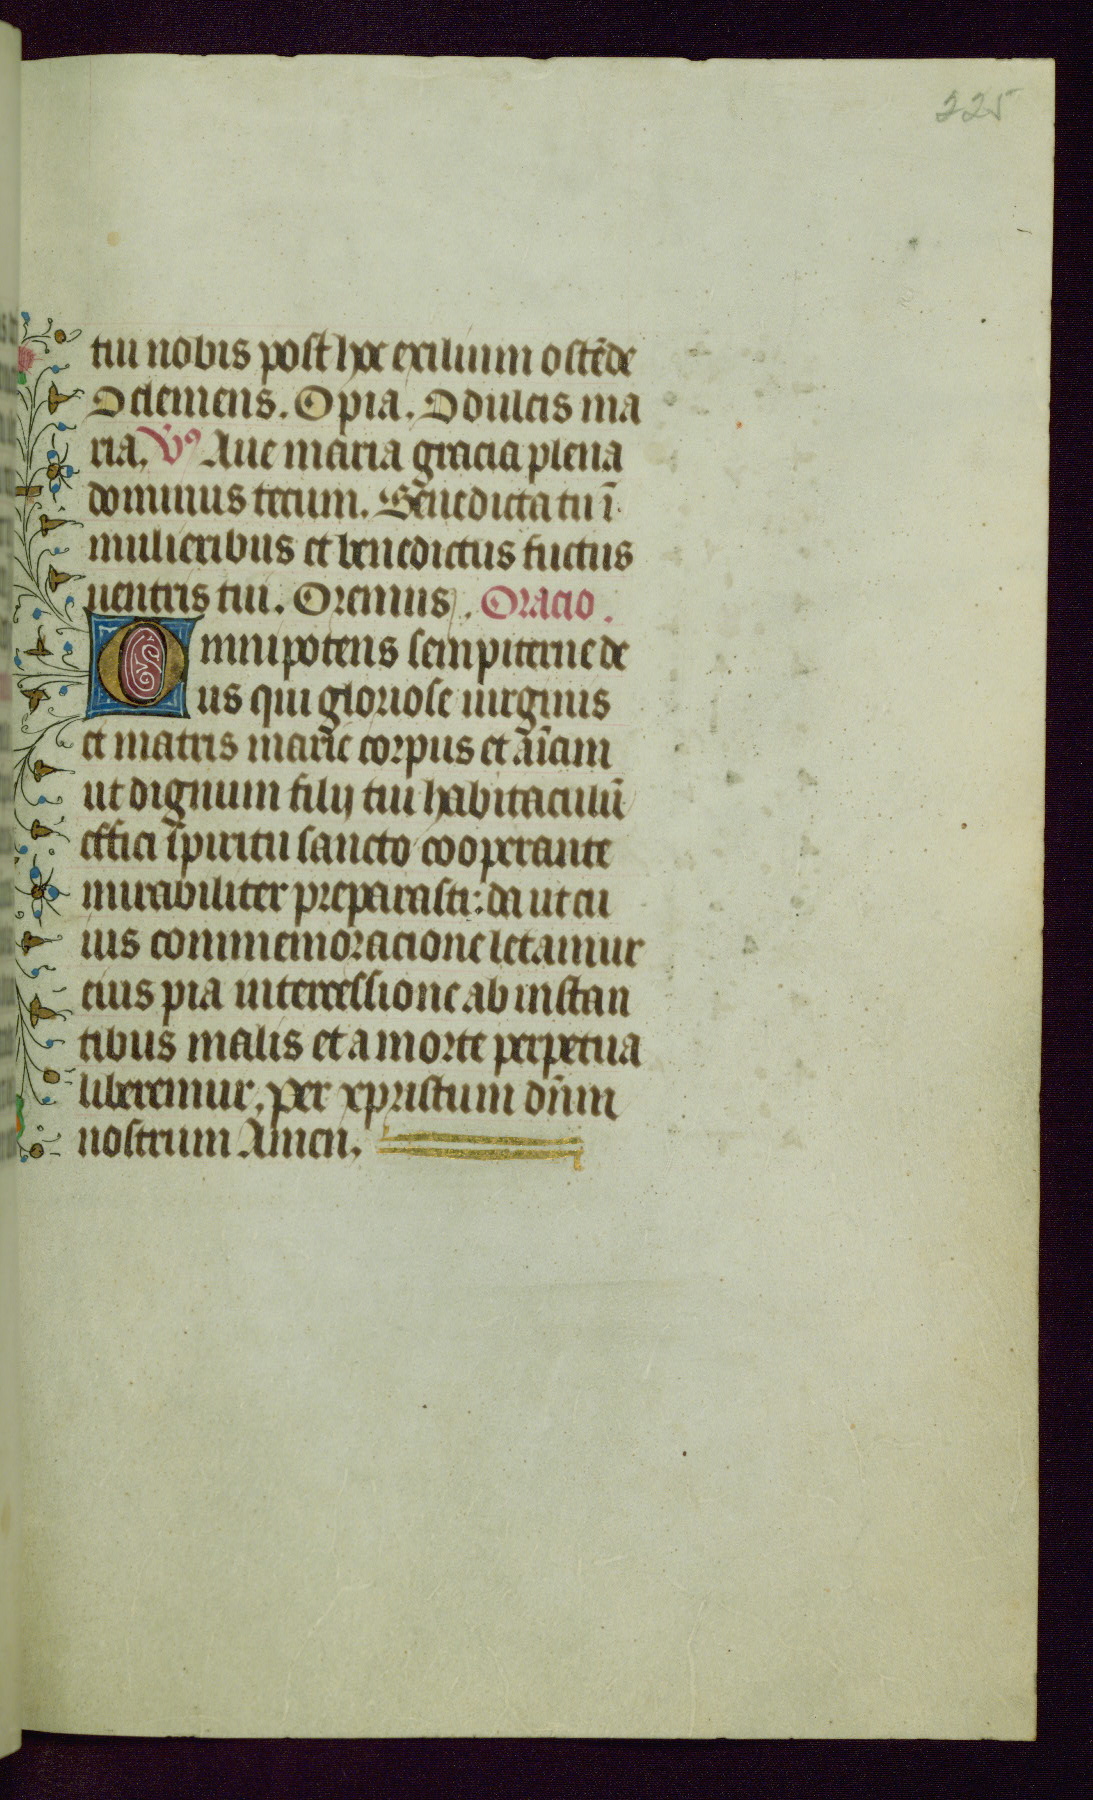 225
tui nobis post hoc exilium ostēde
O clemens. O pia. O dulcis ma
ria. V᾽ Aue maria gracia plena
dominus tecum. Benedicta tu ī
mulieribus et benedictus fuctus
uentris tui. Oremus. Oracio.
Omnipotens sempiterne de
us qui gloriose uirginis
et matris marie corpus et aīam
ut dignum filij tui habitaculū
effici spiritu sancto cooperante
mirabiliter preparasti: da ut cu
ius commemoracione letamur
eius pia intercessione ab instan
tibus malis et a morte perpetua
liberemur. per xpristum dñm
nostrum Amen.